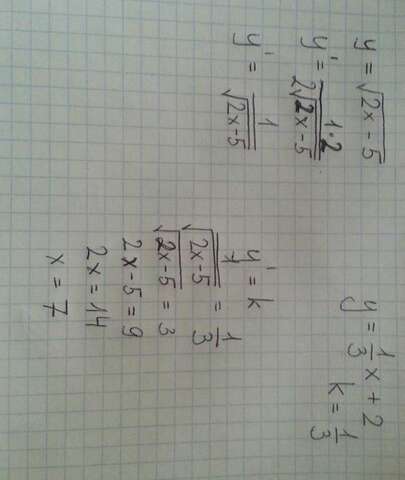 y = √(2x - 5)
y' = (1·2)/(2√(2x - 5))
y' = 1/√(2x - 5)
y = 1/3 x + 2
k = 1/3
y' = k
1/√(2x - 5) = 1/3
√(2x - 5) = 3
2x - 5 = 9
2x = 14
x = 7